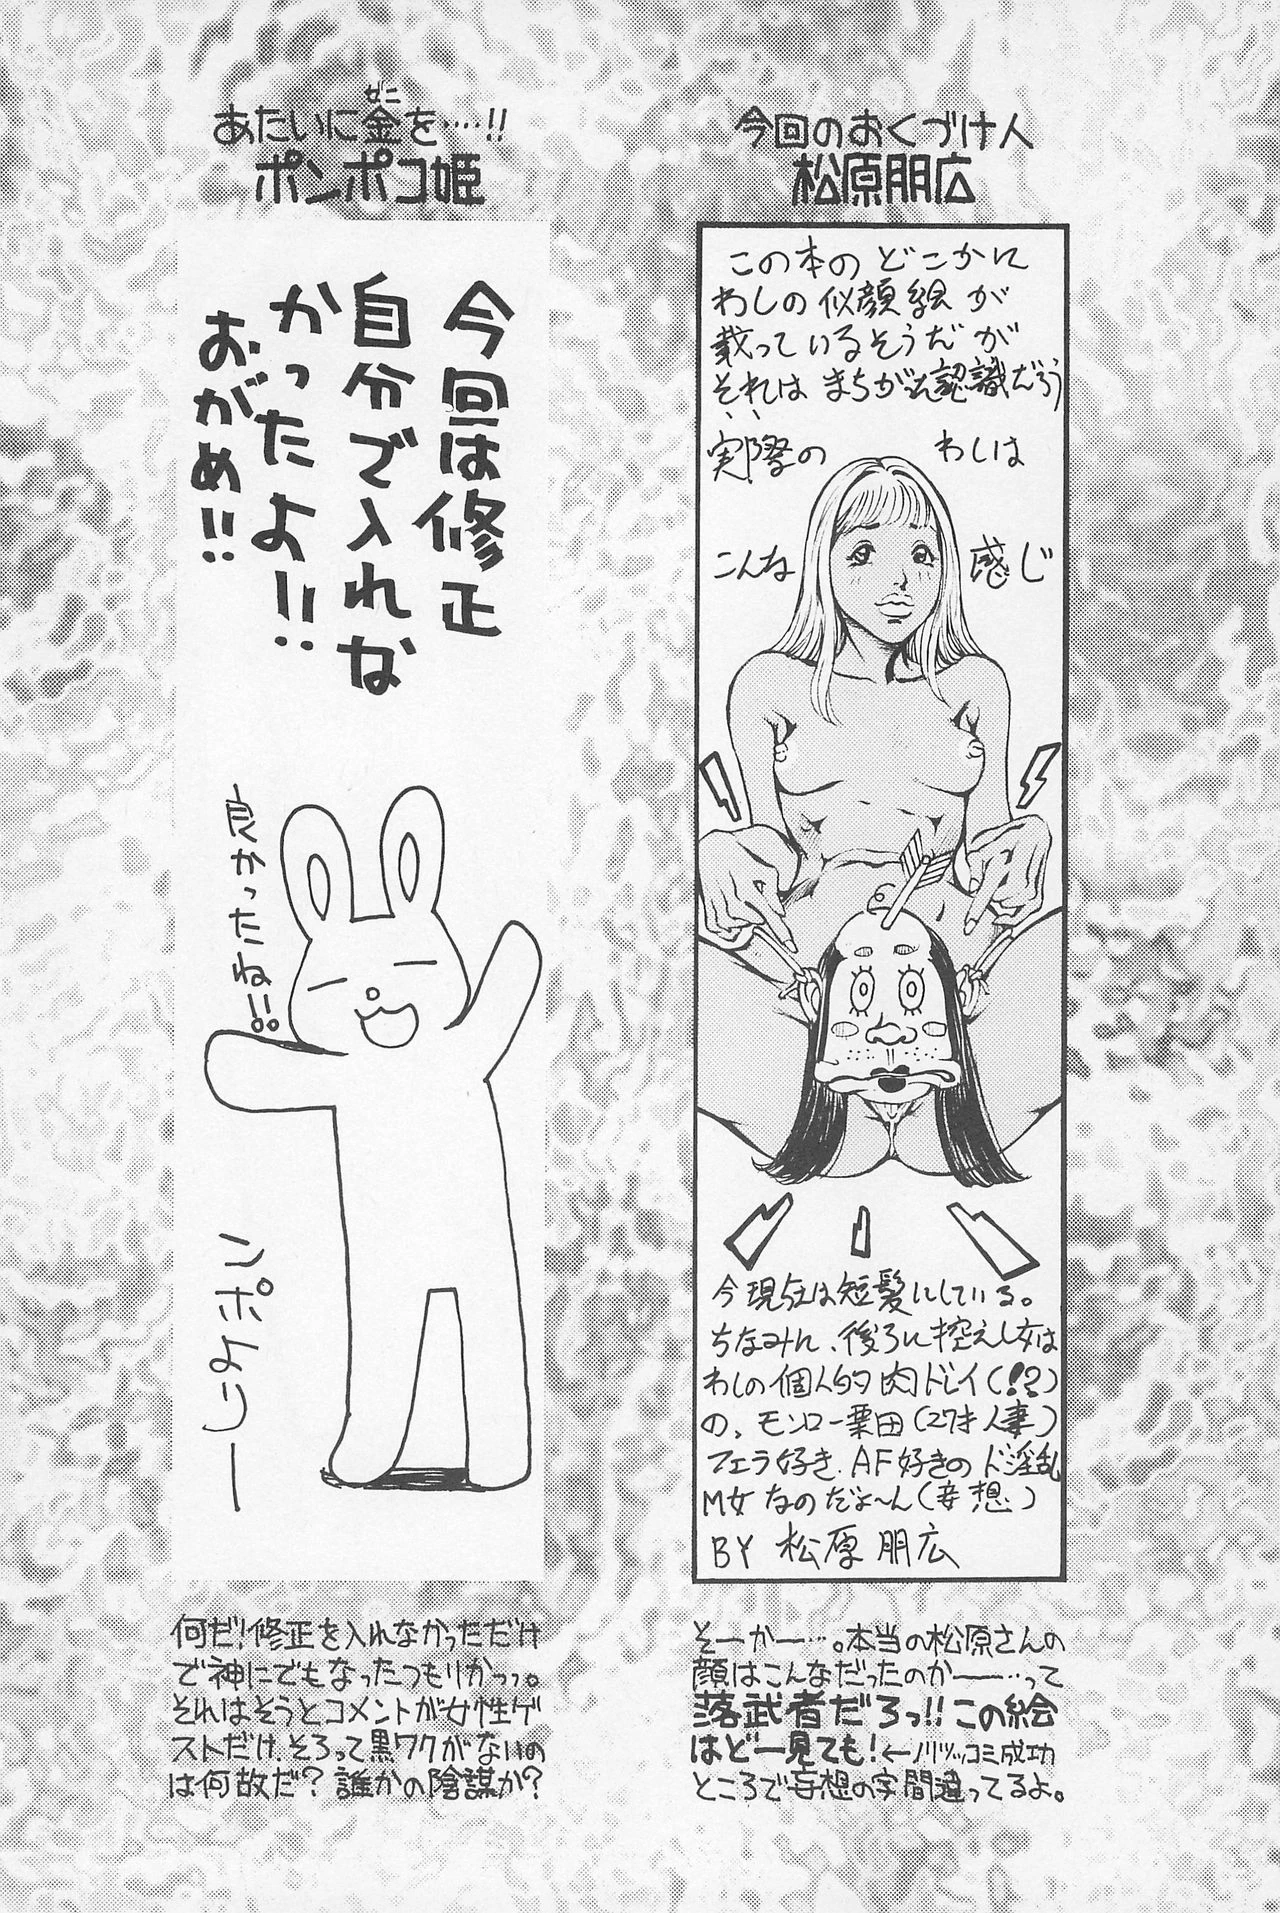 今回のおくづけ人
松原朋広
この本の どこかに
わしの似顔絵が
載っているそうだが
それは まちがった認識だろう
実際の わしは
こんな 感じ
今現在は短髪にしている。
ちなみに、後ろに控えし女は
わしの個人的肉ドレイ(!?)
の、モンロー栗田(27才人妻)
フェラ好き、AF好きのド淫乱
M女なのだよ〜ん(妄想)
BY 松原朋広
そーかー…。本当の松原さんの
顔はこんなだったのかー…って
落武者だろっ!!この絵
はどー見ても!←ノリツッコミ成功
ところで妄想の字間違ってるよ。
あたいに金を‥‥!!
ゼニ
ポンポコ姫
今回は修正
自分で入れな
かったよ!!
おがめ!!
良かったね!!
ンポよりー
何だ!修正を入れなかっただけ
で神にでもなったつもりかっっ。
それはそうとコメントが女性ゲ
ストだけ、そろって黒ワクがないの
は何故だ?誰かの陰謀か?